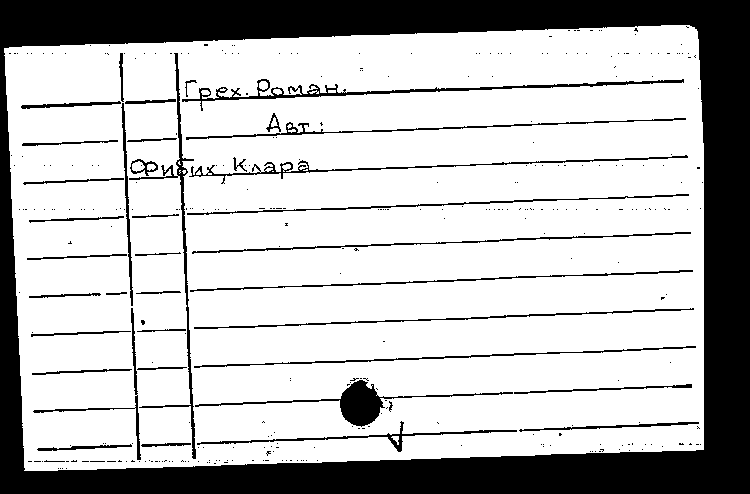 Грех. Роман.
Авт.:
Фибих, Клара